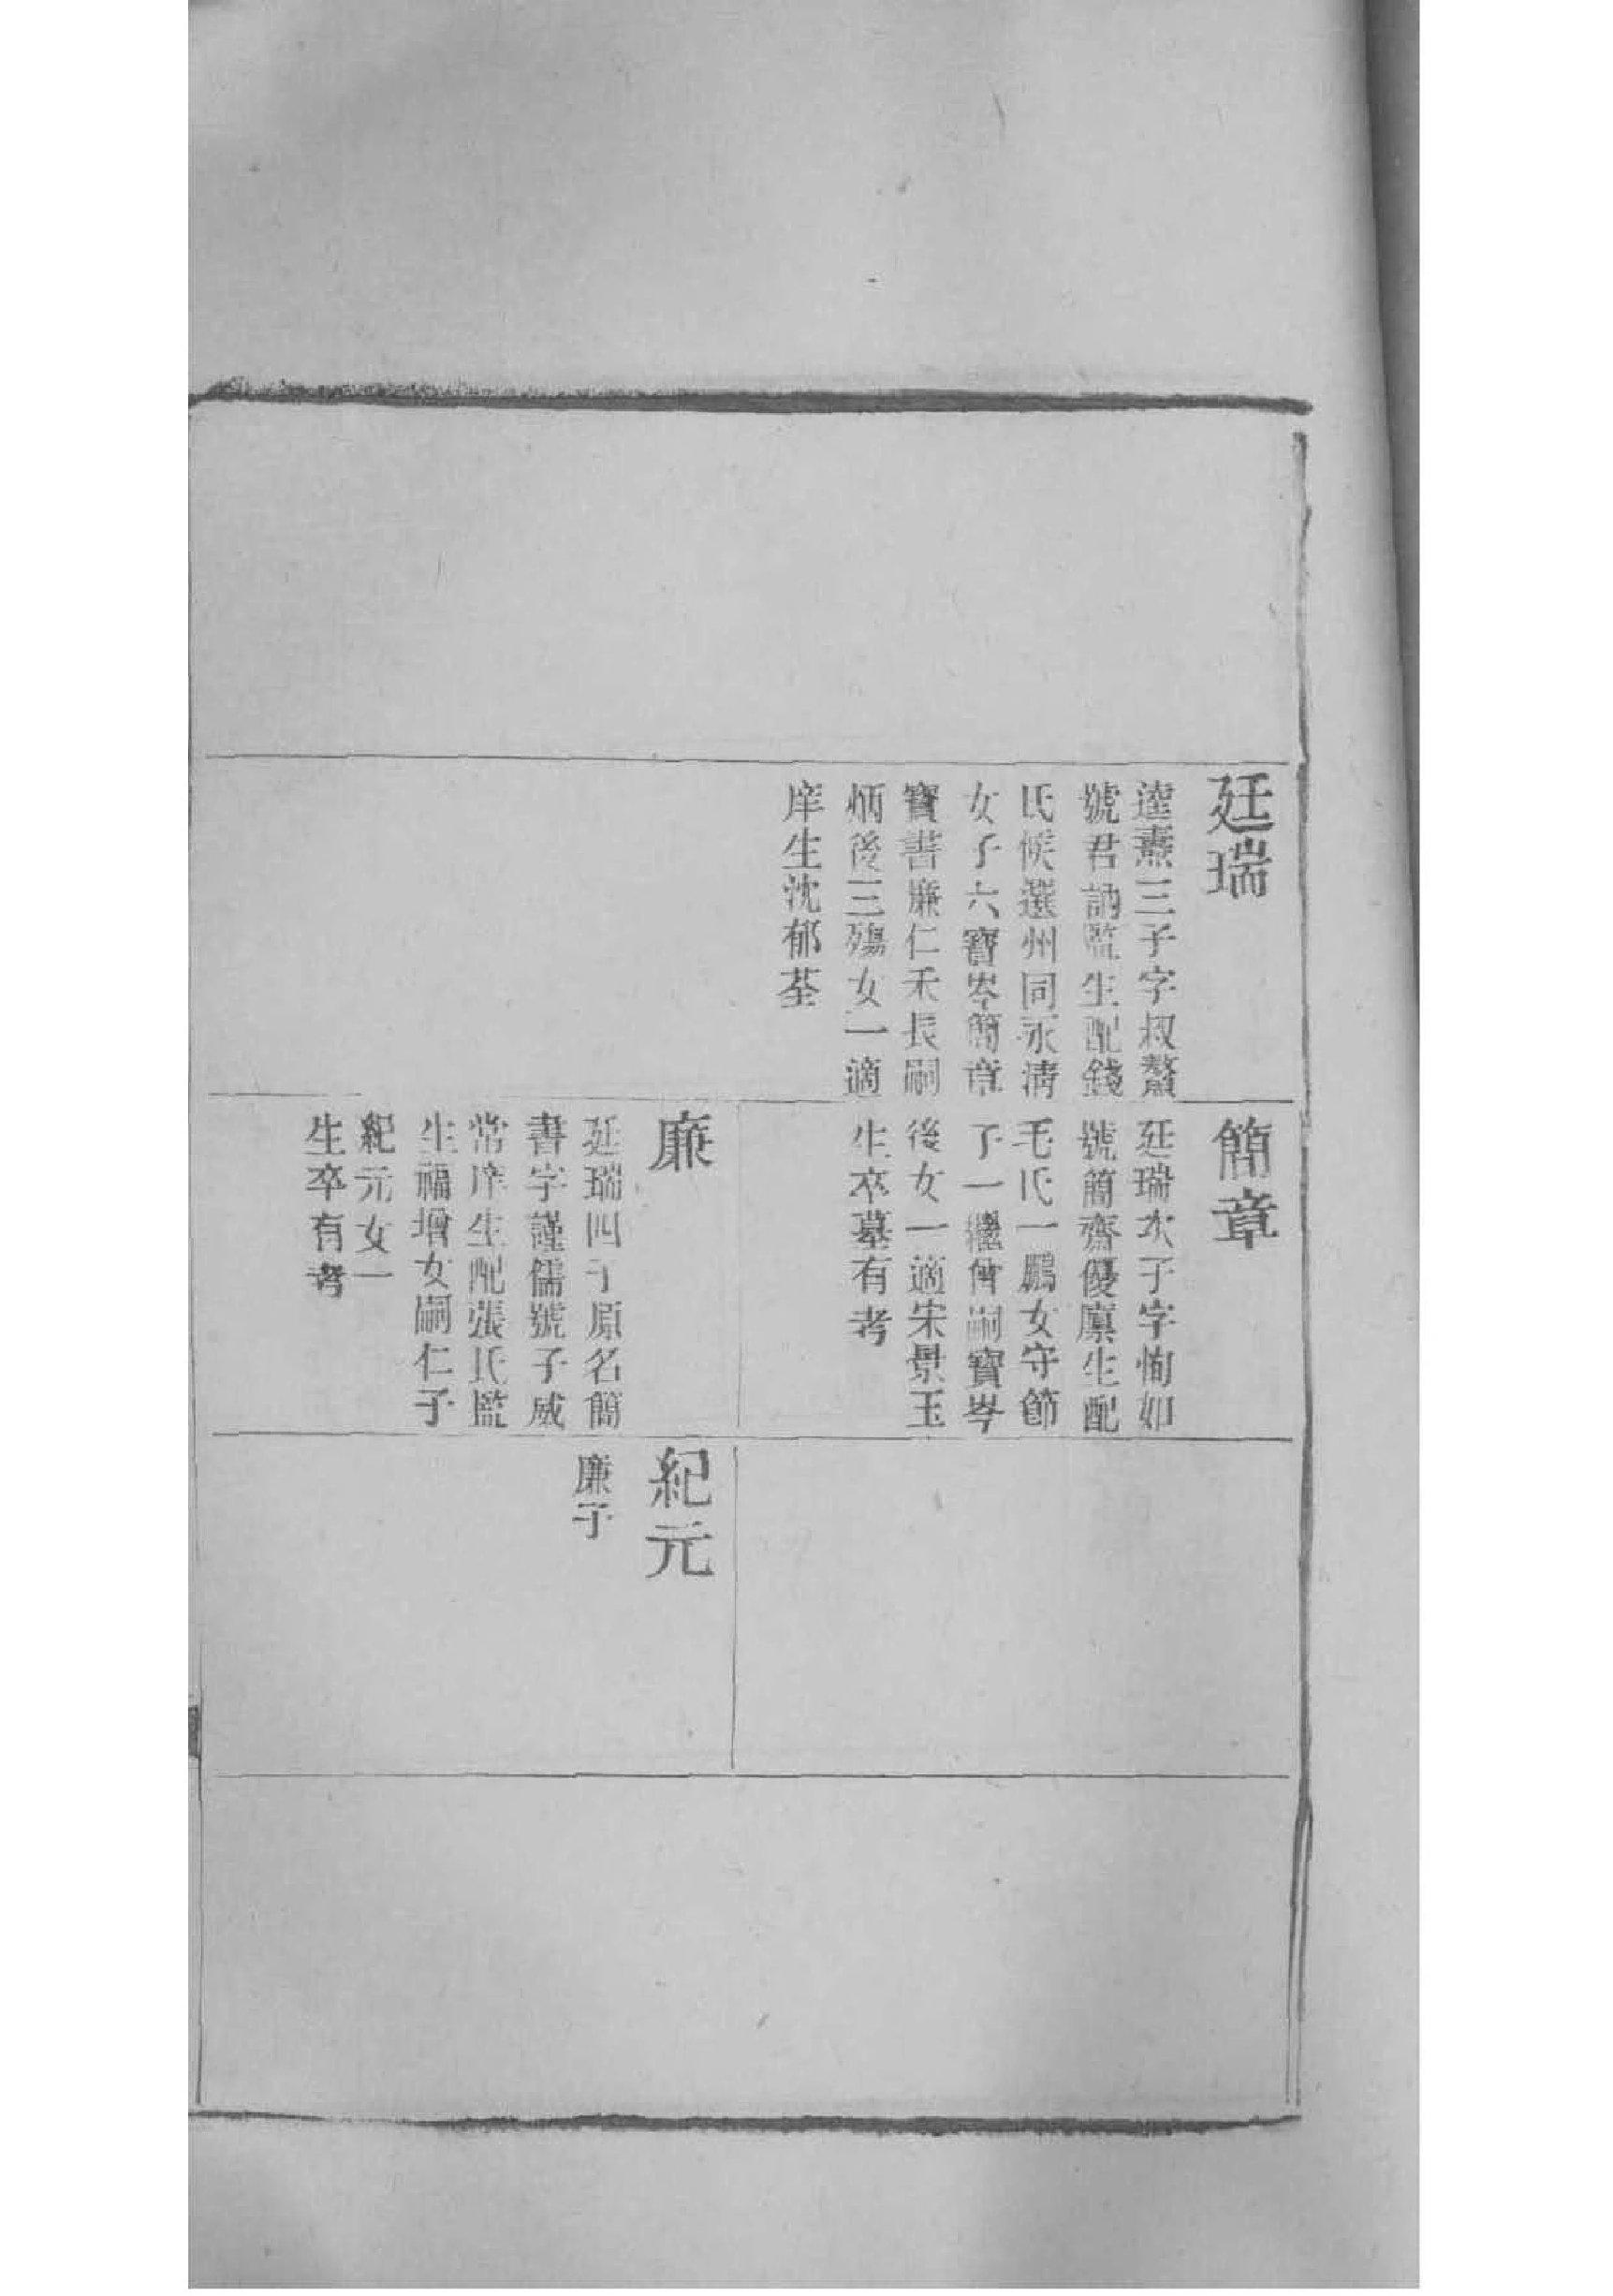 廷瑞
達燾三子字叔鰲
號君訥監生配錢
氏候選州同永清
女子六寶岑簡章
寶書廉仁禾長嗣
炳後三殤女一適
庠生沈郁荃
簡章
廷瑞次子字恂如
號簡齋優廩生配
毛氏一鵬女守節
子一繼曾嗣寶岑
後女一適宋景玉
生卒墓有考
廉
廷瑞四子原名簡
書字謹儒號子威
常庠生配張氏監
生福增女嗣仁子
紀元女一
生卒有考
紀元
廉子